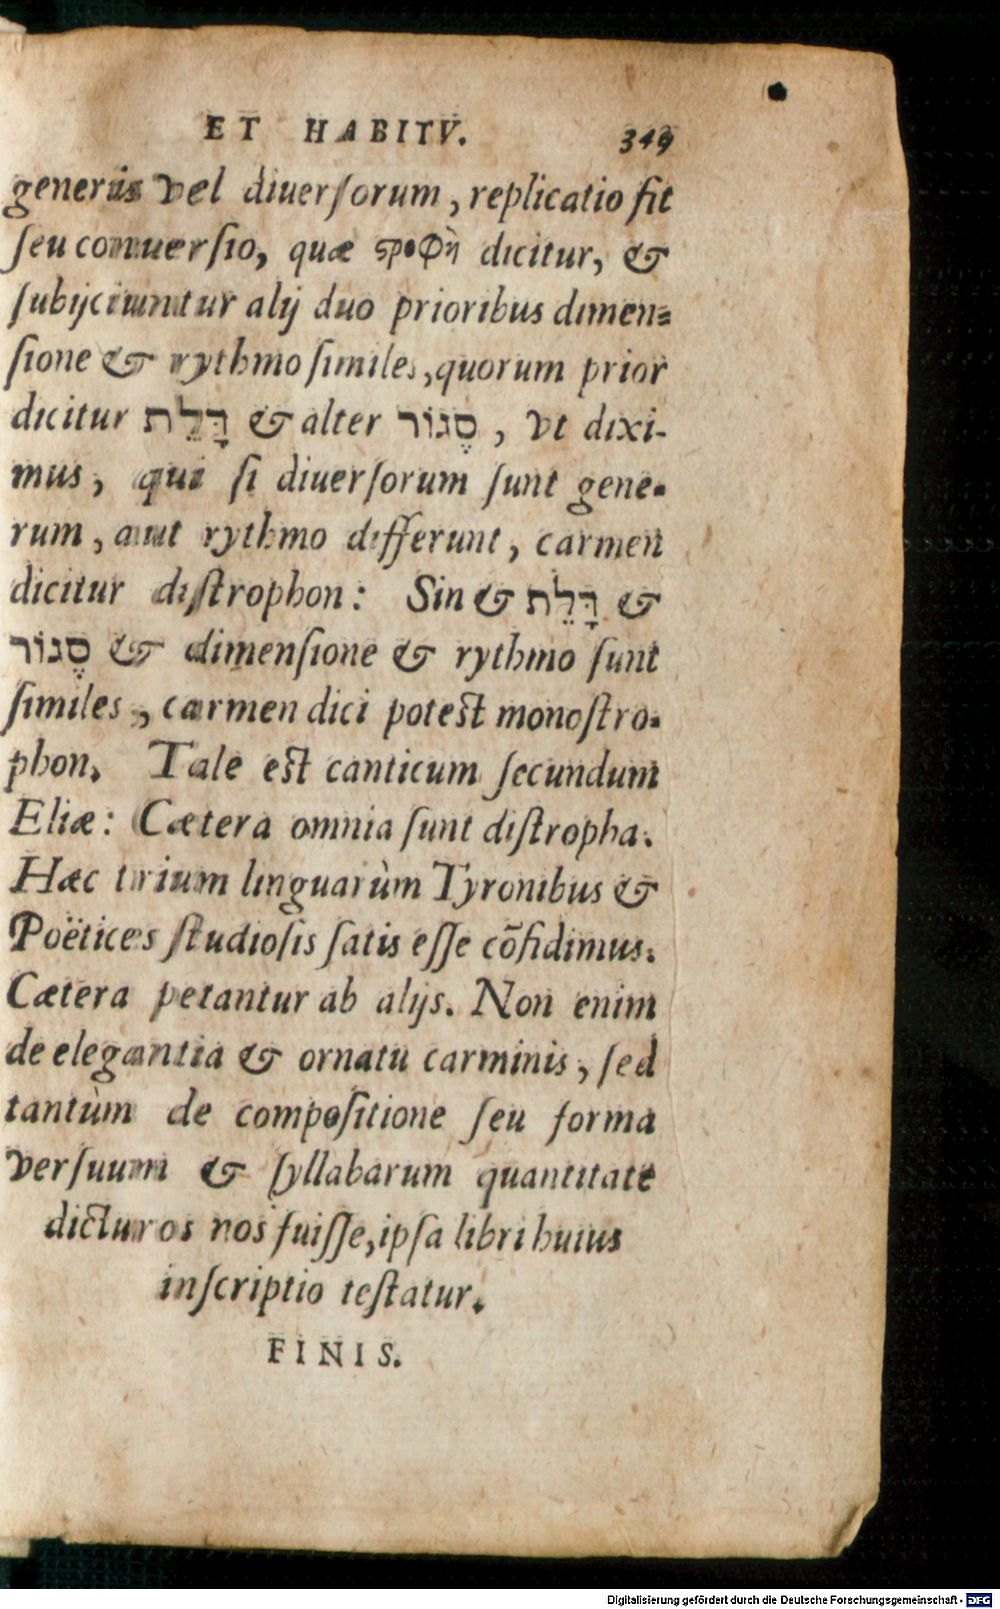 ET HABITV. 349
generis vel diuersorum, replicatio fit
seu conuersio, quæ ςροφὴ dicitur, &
subijciuntur alij duo prioribus dimen=
sione & rythmo similes, quorum prior
dicitur דָּלֵת & alter סֶגוֹר, vt dixi-
mus, qui si diuersorum sunt gene-
rum, aut rythmo differunt, carmen
dicitur distrophon: Sin & דָּלֵת &
סֶגוֹר & dimensione & rythmo sunt
similes, carmen dici potest monostro-
phon. Tale est canticum secundum
Eliæ: Cætera omnia sunt distropha.
Hæc trium linguarùm Tyronibus &
Poëtices studiosis satis esse cõfidimus.
Cætera petantur ab alijs. Non enim
de elegantia & ornatu carminis, sed
tantùm de compositione seu forma
versuum & syllabarum quantitate
dicturos nos fuisse, ipsa libri huius
inscriptio testatur.
FINIS.
Digitalisierung gefördert durch die Deutsche Forschungsgemeinschaft - DFG